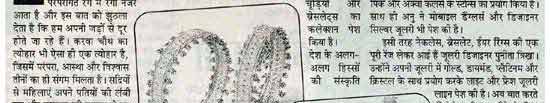 परंपरागत रंग में रंगा नजर
आता है और इस बात को झुठला
देता है कि हम अपनी जड़ों से दूर
होते जा रहे हैं। करवा चौथ का
त्योहार भी ऐसा ही एक त्योहार है,
जिसमें परंपरा, आस्था और विश्वास
तीनों का ही संगम मिलता है। सदियों
से महिलाएं अपने पतियों की लंबी
चूड़ियों और
ब्रेसलेट्स का
कलेक्शन पेश
किया है।
देश के अलग-
अलग हिस्सों
की संस्कृति
पिंक और अक्वा कलर्स के स्टोन्स का प्रयोग किया है।
साथ ही अनु ने मोबाइल डैंगलर्स और डिजाइनर
सिल्वर जूलरी भी पेश की है।
इसी तरह नेकलेस, ब्रेसलेट, ईयर रिंग्स की एक
पूरी रेंज लेकर आई हैं जूलरी डिजाइनर पुनीता त्रिखा।
उन्होंने अपनी जूलरी में गोल्ड, डायमंड, प्लैटिनम और
क्रिस्टल के साथ प्रयोग करके लाइट और फ्रेश जूलरी
लाइन पेश की है। अब बात करते